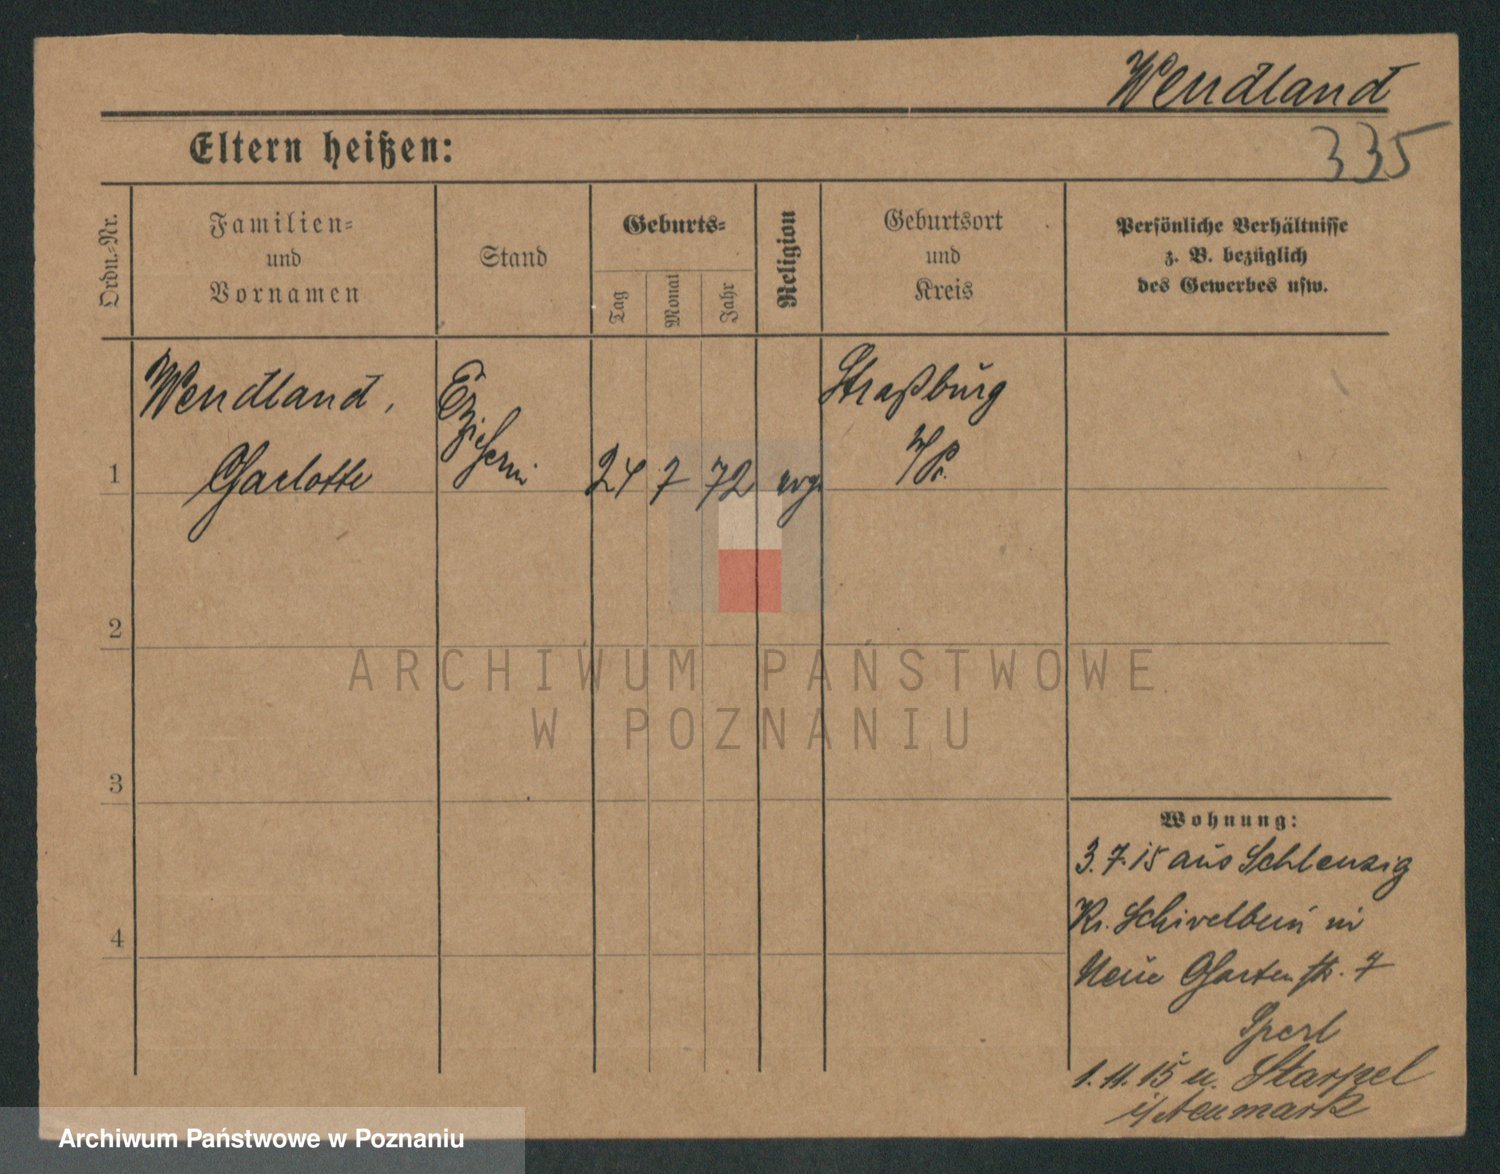 Wendland
335
Eltern heißen:
Ordn.-Nr.
Familien-
und
Vornamen
Stand
Geburts-
Tag
Monat
Jahr
Religion
Geburtsort
und
Kreis
Persönliche Verhältnisse
z. B. bezüglich
des Gewerbes usw.
1
Wendland,
Charlotte
Erzieherin
24 7 72 evg.
Straßburg
2
3
4
Wohnung:
3.7.15 aus Schlenzig
Kr. Schivelbein in
Neue Gartenstr. 7
1.11.15 n. Starpel
i/Neumark
ARCHIWUM PAŃSTWOWE
W POZNANIU
Archiwum Państwowe w Poznaniu